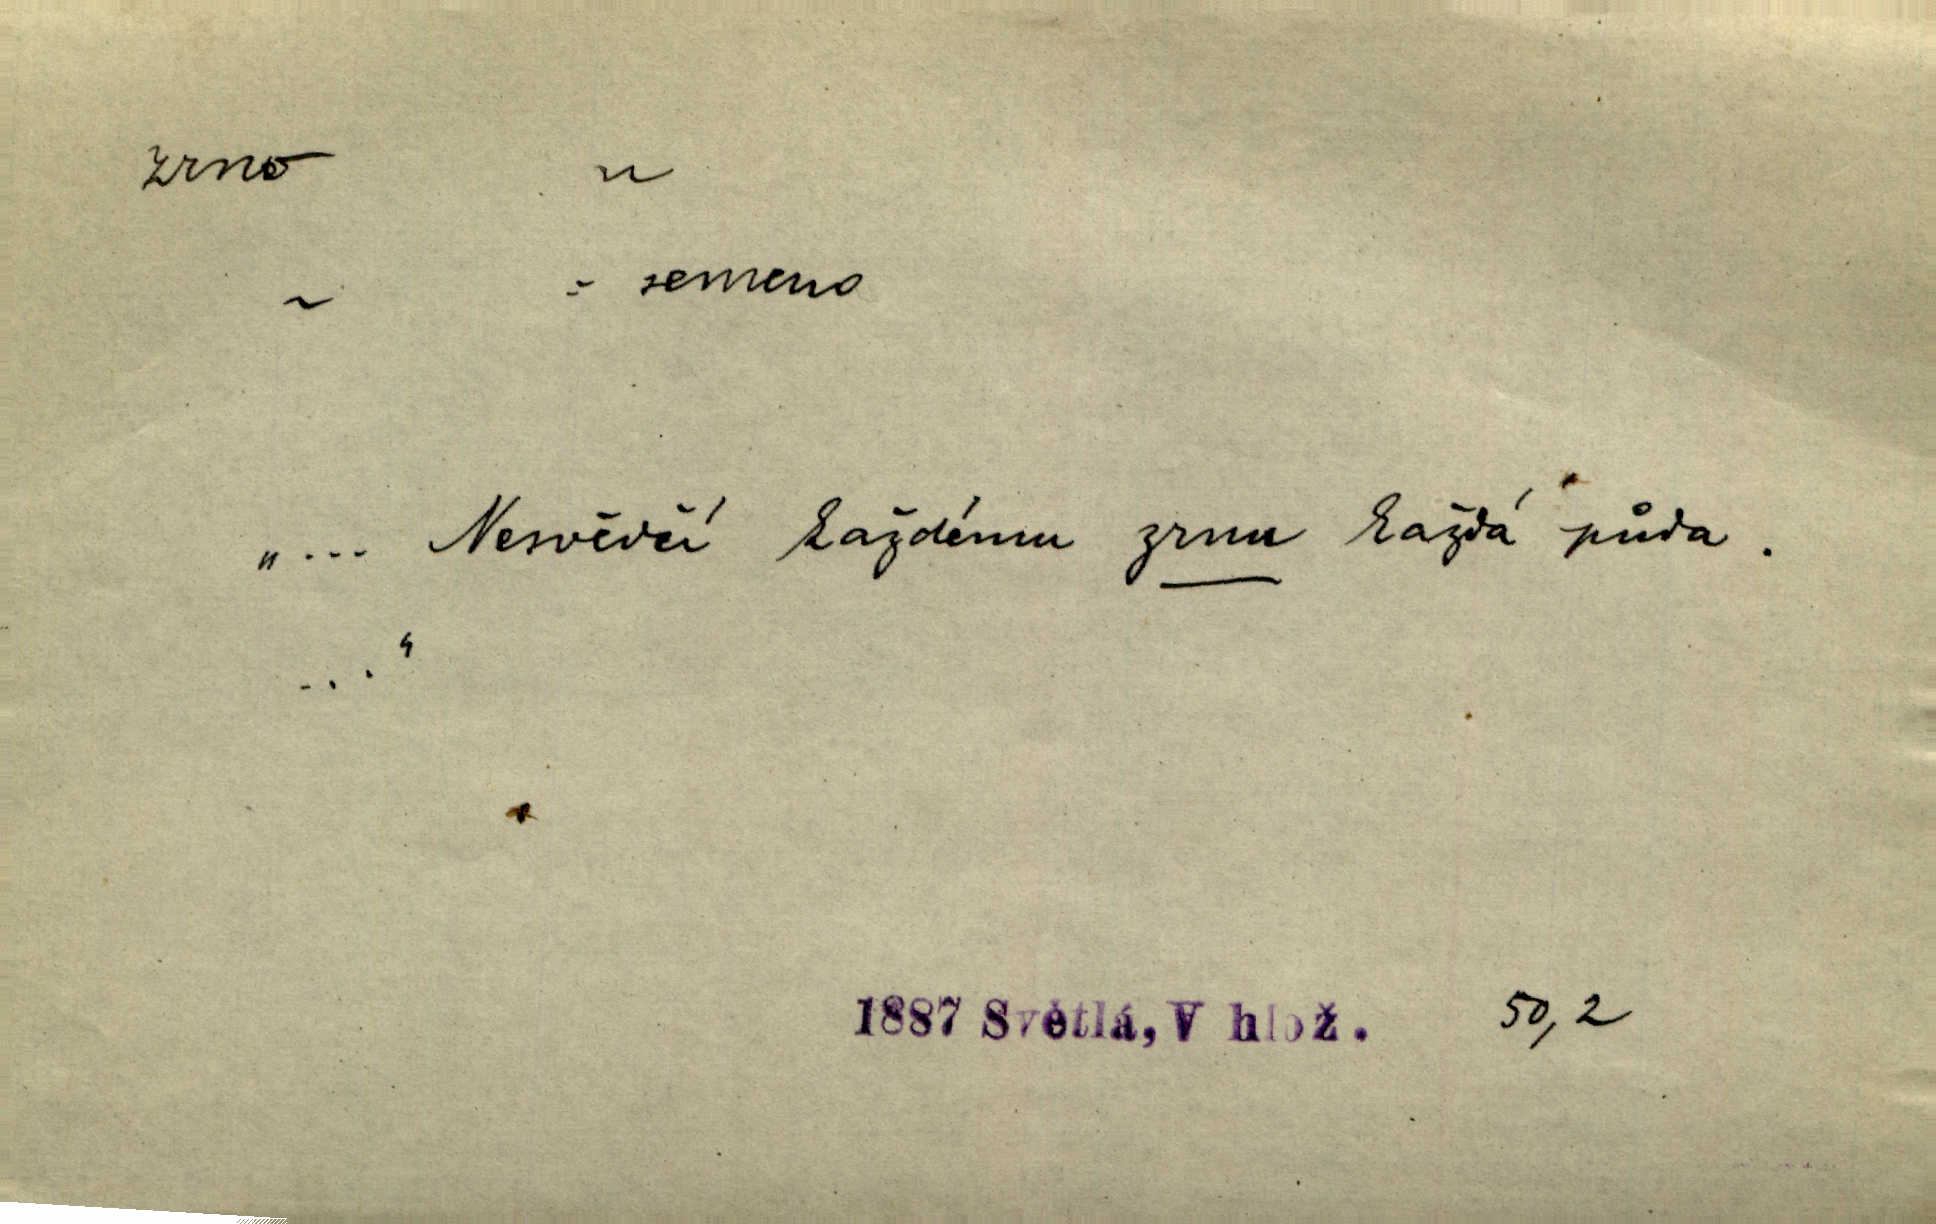 zrno n
~ = semeno
„... Nesvědčí každému zrnu každá půda.
..."
1887 Světlá, V hlož. 50,2